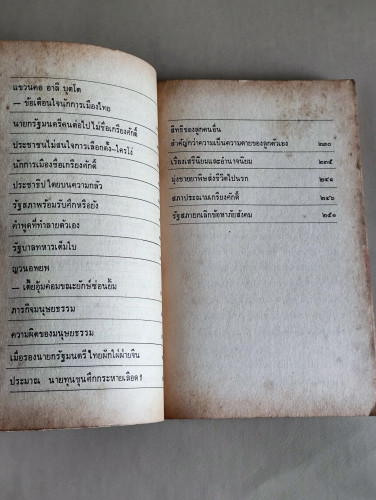 แขวนคอ อาลี บุตโต
— ข้อเตือนใจนักการเมืองไทย
นายกรัฐมนตรีคนต่อไปไม่ชื่อเกรียงศักดิ์
ประชาชนไม่สนใจการเลือกตั้ง–ใครโง่
นักการเมืองชื่อเกรียงศักดิ์
ประชาธิปไตยบนความกลัว
รัฐสภาพร้อมรับศึกหรือยัง
คำพูดที่ทำลายตัวเอง
รัฐบาลทหารเต็มใบ
ญวนอพยพ
— เตี้ยอุ้มค่อมขณะยักษ์ซ่อนยิ้ม
ภารกิจมนุษยธรรม
ความผิดของมนุษยธรรม
เมื่อรองนายกรัฐมนตรีไทยฝักใฝ่ฝ่ายจีน
ประมาณ นายทุนขุนศึกกระหายเลือด !
สิทธิของลูกคนอื่น
สำคัญกว่าความเป็นความตายของลูกตัวเอง ๒๓๐
เรื่องเสรีนิยมและอำนาจนิยม ๒๓๕
มุ่งขายยาพิษส่งชีวิตไปนรก ๒๔๑
สภาประณามเกรียงศักดิ์ ๒๔๖
รัฐสภายกเลิกข้อหาภัยสังคม ๒๕๑